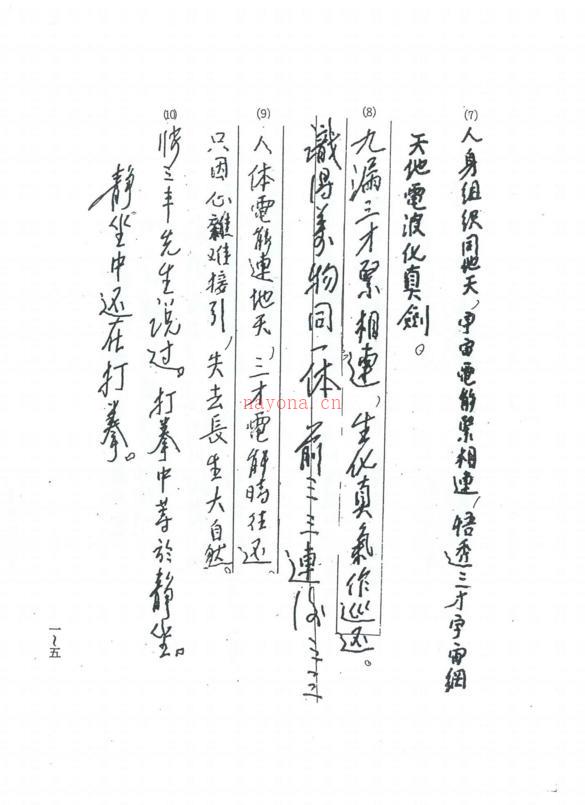 (7) 人身组织同地天，宇宙電能緊相連，悟透三才宇宙網
天地電波化真劍。
(8) 九漏三才緊相連，生化真氣作巡还。
識得萬物同一体 前三三連後三三
(9) 人体電能連地天，三才電能時往还
只因心雜难接引，失去長生大自然。
(10) 張三丰先生说过。打拳中等於静坐。
静坐中还在打拳。
一~五
nayona.cn